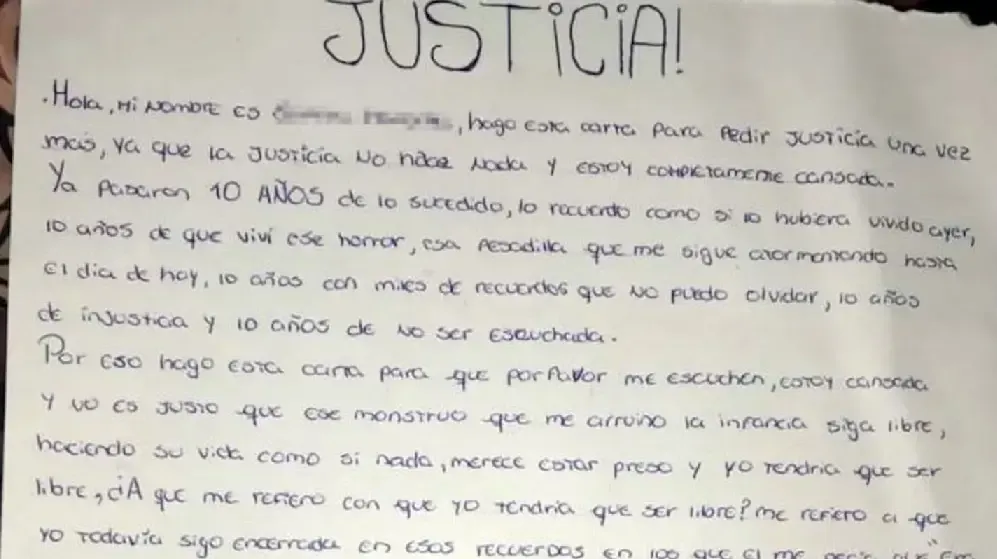 JUSTICIA!
.Hola, Mi Nombre es , hago esta carta para Pedir JUSTICIA una vez
mas, ya que la JUSTICIA No hace Nada y estoy completamente cansada.
Ya Pasaron 10 AÑOS de lo sucedido, lo recuerdo como si lo hubiera vivido ayer,
10 años de que viví ese horror, esa Pesadilla que me sigue atormentando hasta
el dia de hoy, 10 años con miles de recuerdos que No puedo olvidar, 10 años
de inJusticia y 10 años de No ser Escuchada.
Por eso hago esta carta para que porfavor me escuchen, estoy cansada
y No es Justo que ese monstruo que me arruino la infancia siga libre,
haciendo su vida como si nada, merece estar preso y yo tendria que ser
libre, ¿A que me refiero con que yo tendria que ser libre? me refiero a que
yo todavia sigo encerrada en esos recuerdos en los que el me